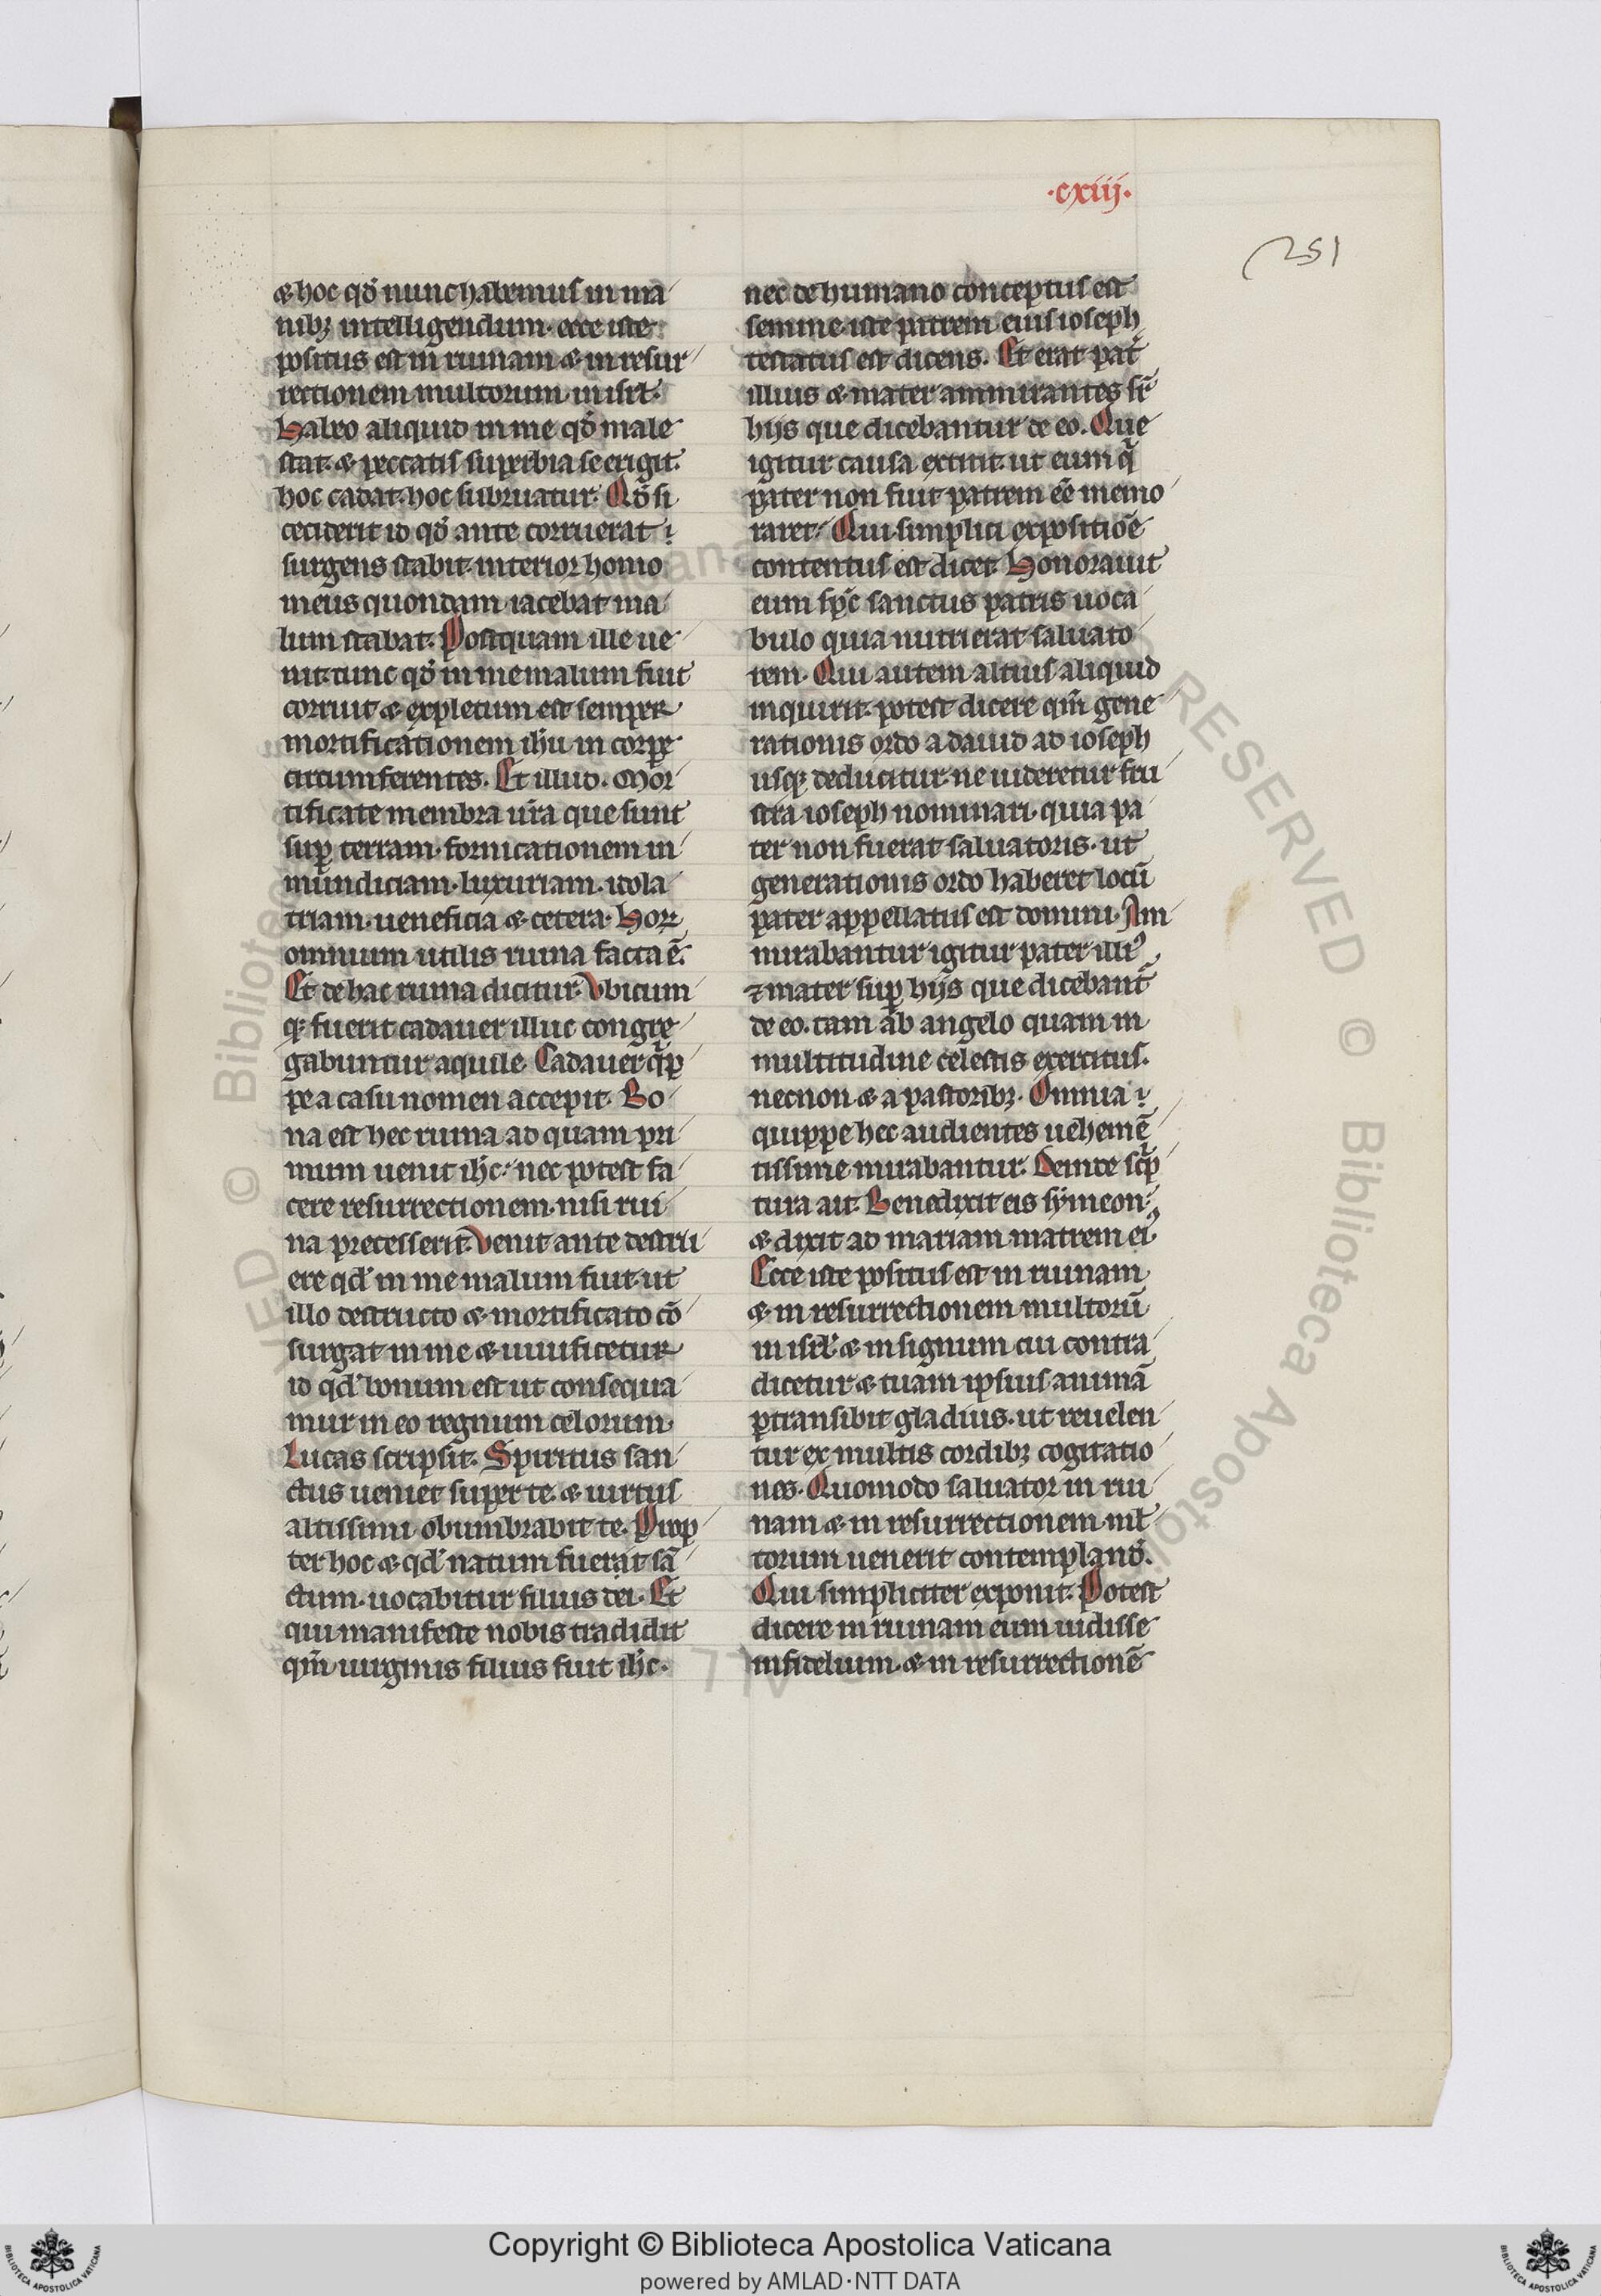 ·cxiij·
251
& hoc qđ nunc habemus in ma
nibꝫ intelligendum· ecce iste
positus est in ruinam & in resur
rectionem multorum in isrł·
Habeo aliquid in me qđ male
stat· & peccatis superbia se erigit·
hoc cadat· hoc subruatur· Qđ si
ceciderit id qđ ante corruerat·
surgens stabit· interior homo
meus quondam iacebat ma
lum stabat· Postquam ille ue
nit· tunc qđ in me malum fuit
corruit & expletum est semper
mortificationem ihu in corpe
circumferentes. Et illud. Mor
tificate membra ur̄a que sunt
suꝑ terram· fornicationem in
mundiciam· luxuriam· idola
triam· ueneficia & cetera· Hoꝝ
omnium utilis ruina facta ē·
Et de hac ruina dicitur· Vbicum
qꝫ fuerit cadauer illuc congre
gabuntur aquile· Cadauer qͣꝑ
pe a casu nomen accepit· Bo
na est hec ruina ad quam pri
mum uenit ihc· nec potest fa
cere resurrectionem· nisi rui
na precesserit· Venit ante destru
ere qd' in me malum fuit· ut
illo destructo & mortificato cō
surgat in me & uiuificetur
id qd' bonum est ut consequa
mur in eo regnum celorum·
Lucas scripsit· Spiritus san
ctus ueniet super te· & uirtus
altissimi obumbrabit te· Prop
ter hoc & qd' natum fuerit sā
ctum· uocabitur filius dei· Et
qui manifeste nobis tradidit
qm̄ uirginis filius fuit ihc·
nec de humano conceptus est
semine· iste patrem eius ioseph
testatus est dicens. Et erat pat̄
illius & mater ammirantes sr̄
hijs que dicebantur de eo. Que
igitur causa extitit· ut eum qͣ
pater non fuit patrem eē memo
raret· Qui simplici expositiōe
contentus est dicet· Honorauit
eum spc̄ sanctus patris uoca
bulo quia nutrierat saluato
rem· Qui autem altius aliquid
inquirit· potest dicere qm̄ gene
rationis ordo a dauid ad ioseph
usqꝫ deducitur· ne uideretur fru
stra ioseph nominari· quia pa
ter non fuerat saluatoris· ut
generationis ordo haberet locū
pater appellatus est domini· Am
mirabantur igitur pater illiꝰ
⁊ mater suꝑ hijs que dicebant̄
de eo. tam ab angelo quam in
multitudine celestis exercitus.
necnon & a pastoribꝫ· Omnia
quippe hec audientes uehemē
tissime mirabantur· Deinde scͥp
tura ait· Benedixit eis symeon·
& dixit ad mariam matrem eiꝰ
Ecce iste positus est in ruinam
& in resurrectionem multorū
in isrł & in signum cui contra
dicetur & tuam ipsius animā
ꝑtransibit gladius· ut reuelen
tur ex multis cordibꝫ cogitatio
nes· Quomodo saluator in rui
nam & in resurrectionem ml̄
torum uenerit contempland̄.
Qui simpliciter exponit· Potest
dicere in ruinam eum uidisse
infidelium· & in resurrectionē
Copyright © Biblioteca Apostolica Vaticana
powered by AMLAD·NTT DATA